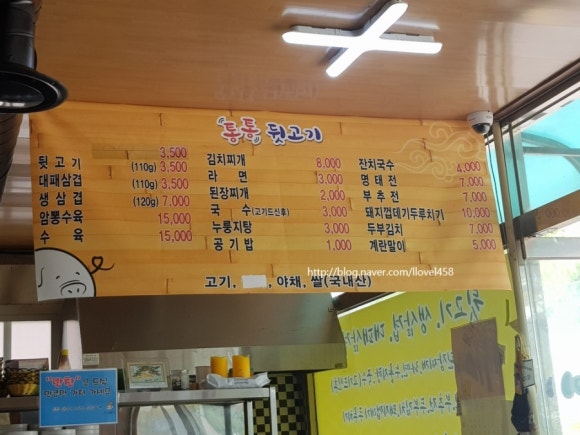 통통 뒷고기
3,500
뒷고기 (110g) 3,500
대패삼겹 (110g) 3,500
생삼겹 (120g) 7,000
암뽕수육 15,000
수육 15,000
김치찌개 8,000
라면 3,000
된장찌개 2,000
국수(고기드신후) 3,000
누룽지탕 3,000
공기밥 1,000
잔치국수 4,000
명태전 7,000
부추전 7,000
돼지껍데기두루치기 10,000
두부김치 7,000
계란말이 5,000
고기, 야채, 쌀(국내산)
http://blog.naver.com/llovel458
뒷고기, 생삼겹, 대패삼겹